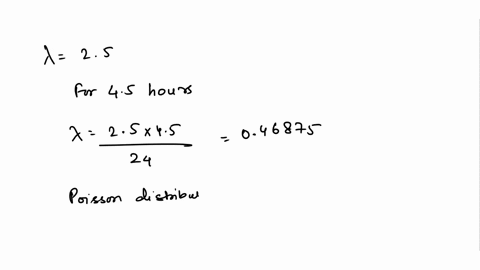 λ = 2.5
For 4.5 hours
λ = 2.5 x 4.5 / 24 = 0.46875
Poisson distribu